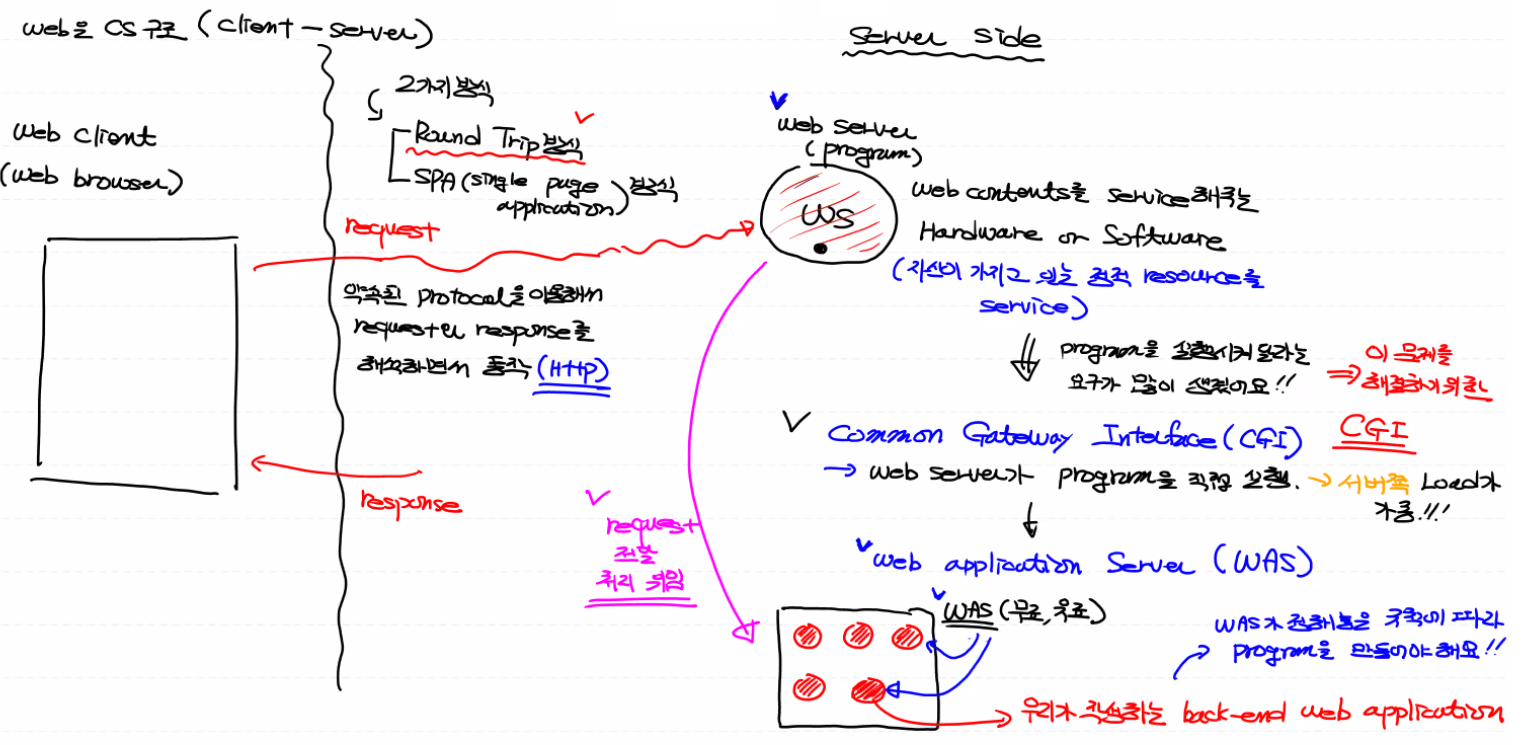 web은 CS구조 (client - server)
web client
(web browser)
2가지 방식
Round Trip 방식
SPA (single page
application) 방식
request
약속된 protocol을 이용해서
request와 response를
해석하면서 동작 (HTTP)
response
Server Side
web server
(program)
WS
web contents를 service해주는
Hardware or Software
(자신이 가지고 있는 정적 resource를
service)
program을 실행시켜 달라는
요구가 많이 생겼어요!!
⇒ 이 문제를
해결하기 위한
CGI
Common Gateway Interface (CGI)
→ web server가 program을 직접 실행. → 서버쪽 Load가
가중!!!
web application Server (WAS)
request
전달
처리 위임
WAS (무료, 유료)
WAS가 정해놓은 규칙에 따라
program을 만들어야 해요!!
우리가 작성하는 back-end web application